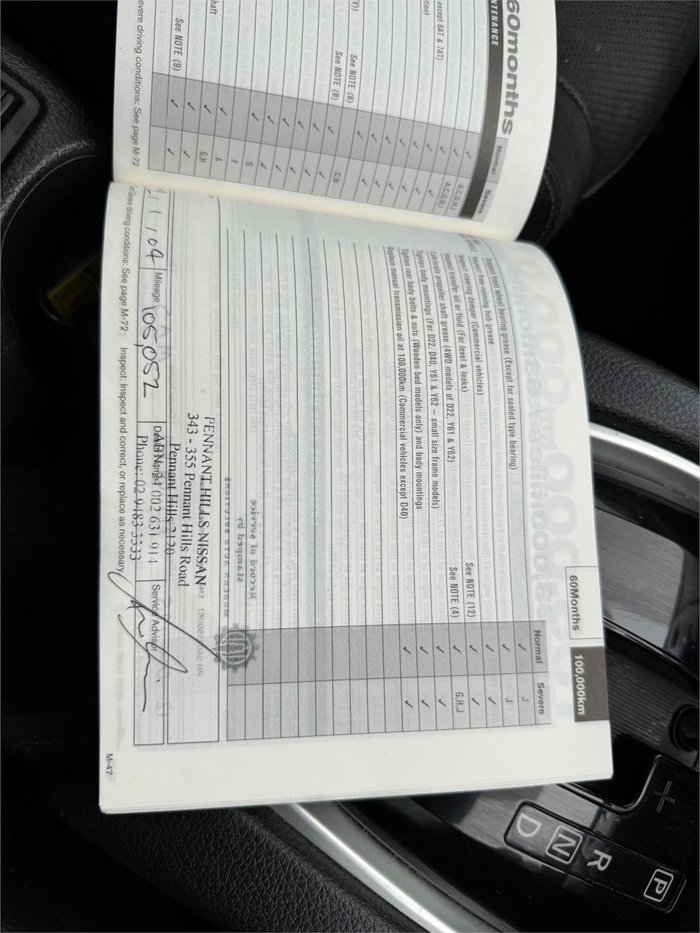 60months
NTENANCE
Normal
Severe
4,C,G,H,I
except 6AT & 7AT)
4,C,G,H,I
ition)
TV))
See NOTE (8)
See NOTE (8)
C,H
G
F
haft
A
G,H
See NOTE (9)
evere driving conditions: See page M-72
60Months
100,000km
Normal
Severe
Inspect front wheel bearing grease (Except for sealed type bearing)
J
Inspect free-running hub grease
J
Inspect steering damper (Commercial vehicles)
Inspect transfer oil or fluid (For level & leaks)
See NOTE (12)
Lubricate propeller shaft grease (4WD models of D22, Y61 & Y62)
See NOTE (4)
G,H,J
Tighten body mountings (For D22, D40, Y61 & Y62 – small size frame models)
Tighten rear body bolts & nuts (Wooden bed models only) and body mountings
Replace manual transmission oil at 100,000km (Commercial vehicles except D40)
PENNANT HILLS NISSAN
343 - 355 Pennant Hills Road
Pennant Hills 2120
ABN 21 002 631 914
Phone: 02 9483 3333
Mileage 105052
Service Advisor
driving conditions: See page M-72 Inspect: Inspect and correct, or replace as necessary
M-47
P
R
N
D
+